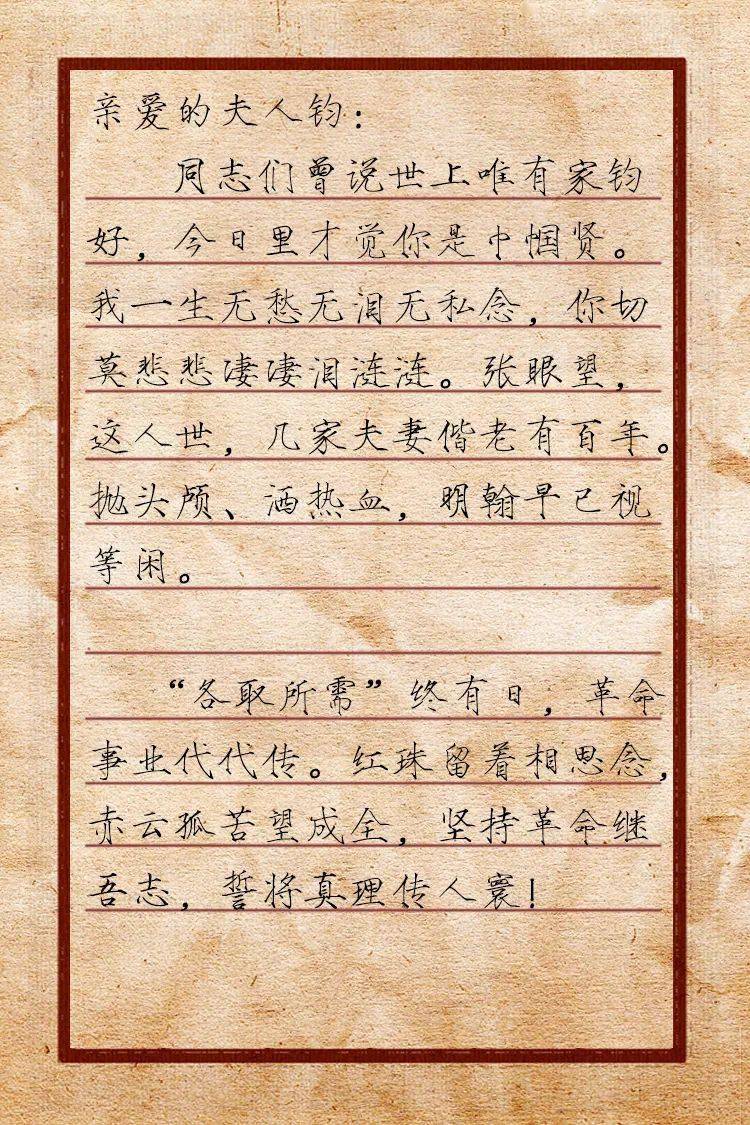 亲爱的夫人钧：
同志们曾说世上唯有家钧
好，今日里才觉你是巾帼贤。
我一生无愁无泪无私念，你切
莫悲悲凄凄泪涟涟。张眼望，
这人世，几家夫妻偕老有百年。
抛头颅、洒热血，明翰早已视
等闲。
“各取所需”终有日，革命
事业代代传。红珠留着相思念，
赤云孤苦望成全，坚持革命继
吾志，誓将真理传人寰！